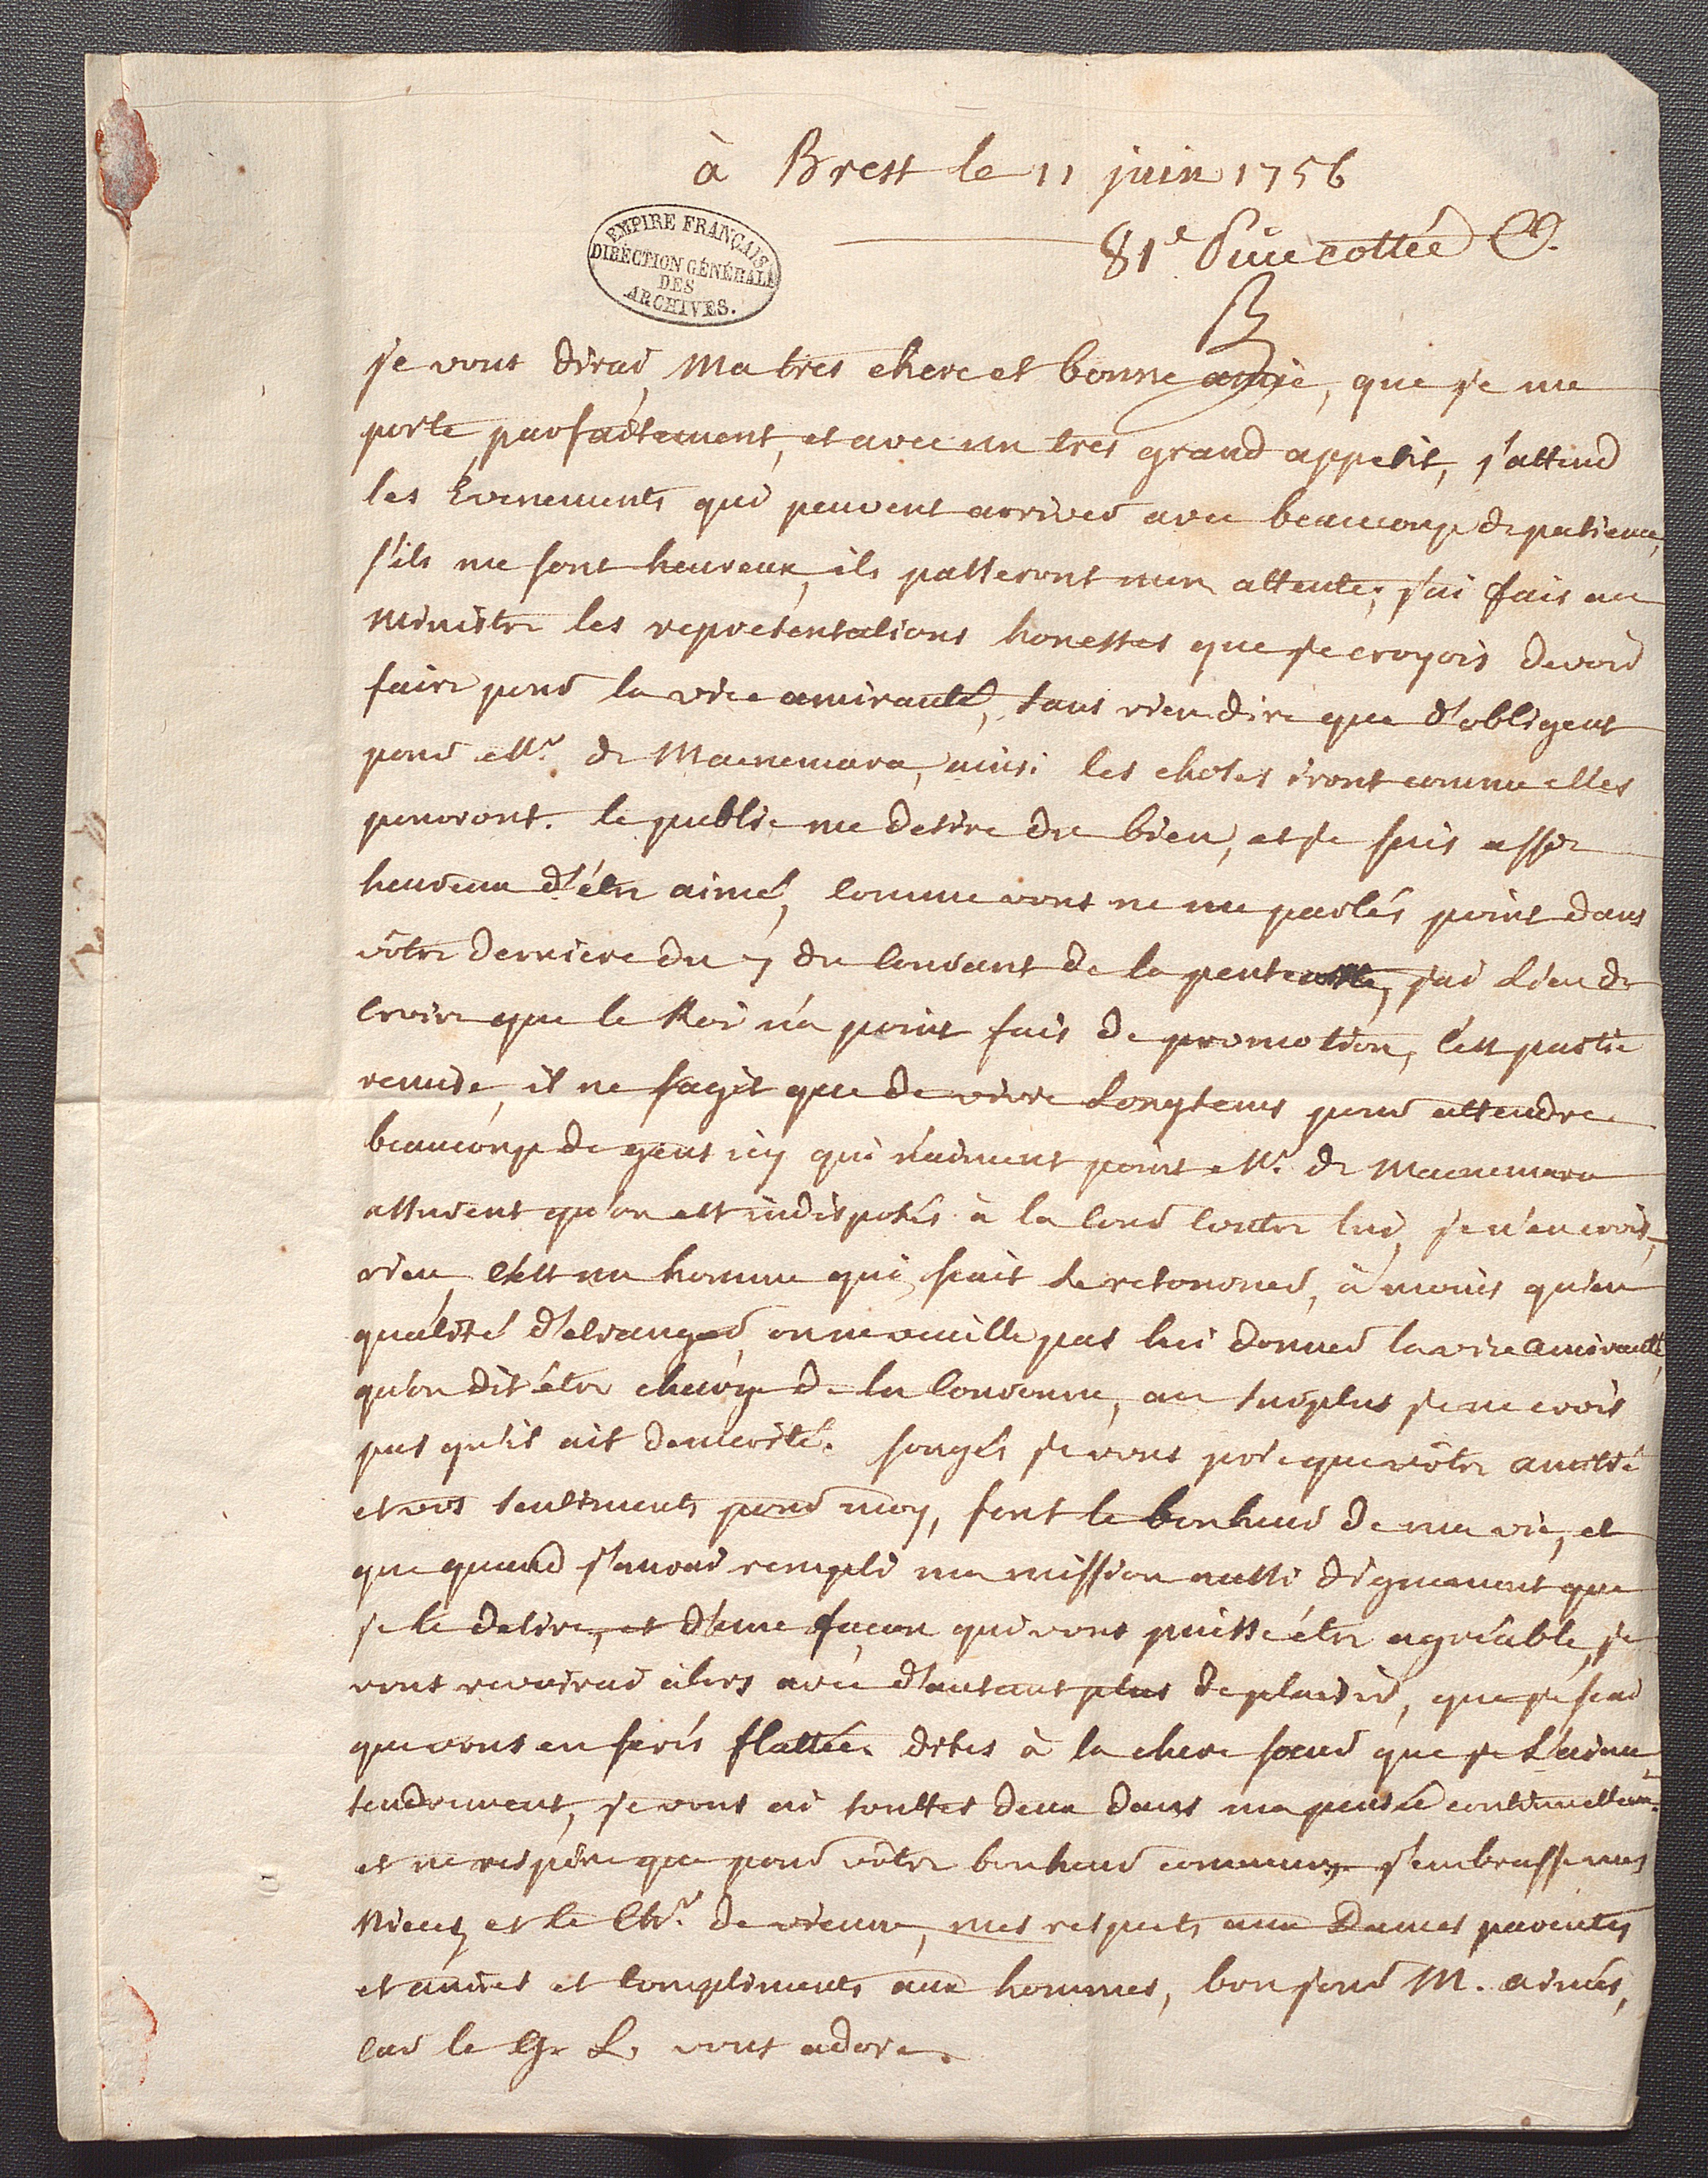 à Brest le 11 juin 1756
EMPIRE FRANÇAIS
DIRECTION GÉNÉRALE
DES
ARCHIVES.
81e Piece cottée
je vous dirai, Ma tres chere et bonne amie, que je me
porte parfaitement, et avec un tres grand appetit, j'attend
les Evenements qui peuvent arriver avec beaucoup de patience,
s'ils me sont heureux, ils passeront mon attente; j'ai fais au
Ministre les representations honestes que je croyois devoir
faire pour la vice amirauté, sans rien dire que d'obligeant
pour Mr. de Macnemara, ainsi les choses iront comme elles
pouront. le public me desire du bien, et je suis assez
heureux d'être aimé, Comme vous ne me parlés point dans
vôtre derniere du 7 du Courant de la pentecoste, j'ai Lieu de
Croire que le Roi n'a point fais de promotion, C'est partie
remise, il ne s'agit que de vivre Longtems pour attendre.
beaucoup de gens icy qui n'aiment point Mr. de Macnemara
assurent qu'on est indisposés à la Cour Contre lui, je n'en crois
rien, C'est un homme qui sçait se retourner, à moins qu'en
qualité d'étranger, on ne veuille pas lui donner la vice Amirauté,
qu'on dit être charge de la Couronne, au surplus je ne crois
pas qu'il ait demerité. songés je vous prie que vôtre amitié
et vos sentiments pour moy, font le bonheur de ma vie, et
que quand j'aurai rempli ma mission aussi dignement que
je le desire, et d'une façon qui vous puisse être agréable, je
vous revoirai alors avec d'autant plus de plaisir, que je serai
que vous en serés flattée. dites à la chere soeur que je L'aime
tendrement, je vous ai touttes deux dans ma pensée continuellemt.
et ne respire que pour vôtre bonheur commun, j'embrasse mes
Nieces et le Chr. de vienne, mes respects aux Dames parentes
et amies et Compliments aux hommes, bon jour M. aimés,
Car le Gr L. vous adore.